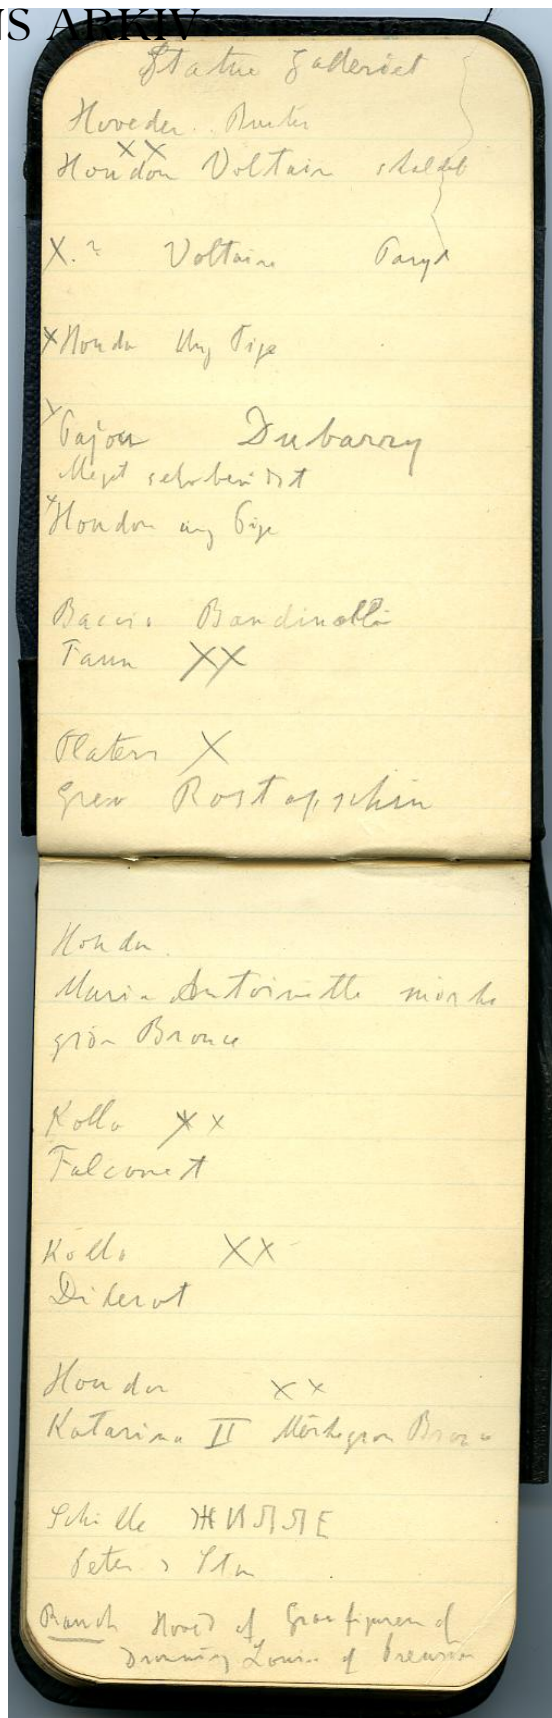 NS ARKIV
Statue Galleriet
Hoveder. Buster
XX
Houdon Voltair skaldet
X.? Voltaire Paryk
X Houdon Ung Pige
X Pajou Dubarry
Meget
X Houdon ung Pige
Baccio Bandinelli
Faun XX
Platers X
Grev Rostopschin
Houdon.
Maria Antoinette mörke
grön Bronce
Kollo XX
Falconet
Kollo XX
Diderot
Houdon XX
Katarina II Mörkegrøn Bronce
Schille ЖИЛЛЕ
Peter d Stn
Rauch Hoved af Gravfiguren af
Dronning Louise af Preussen